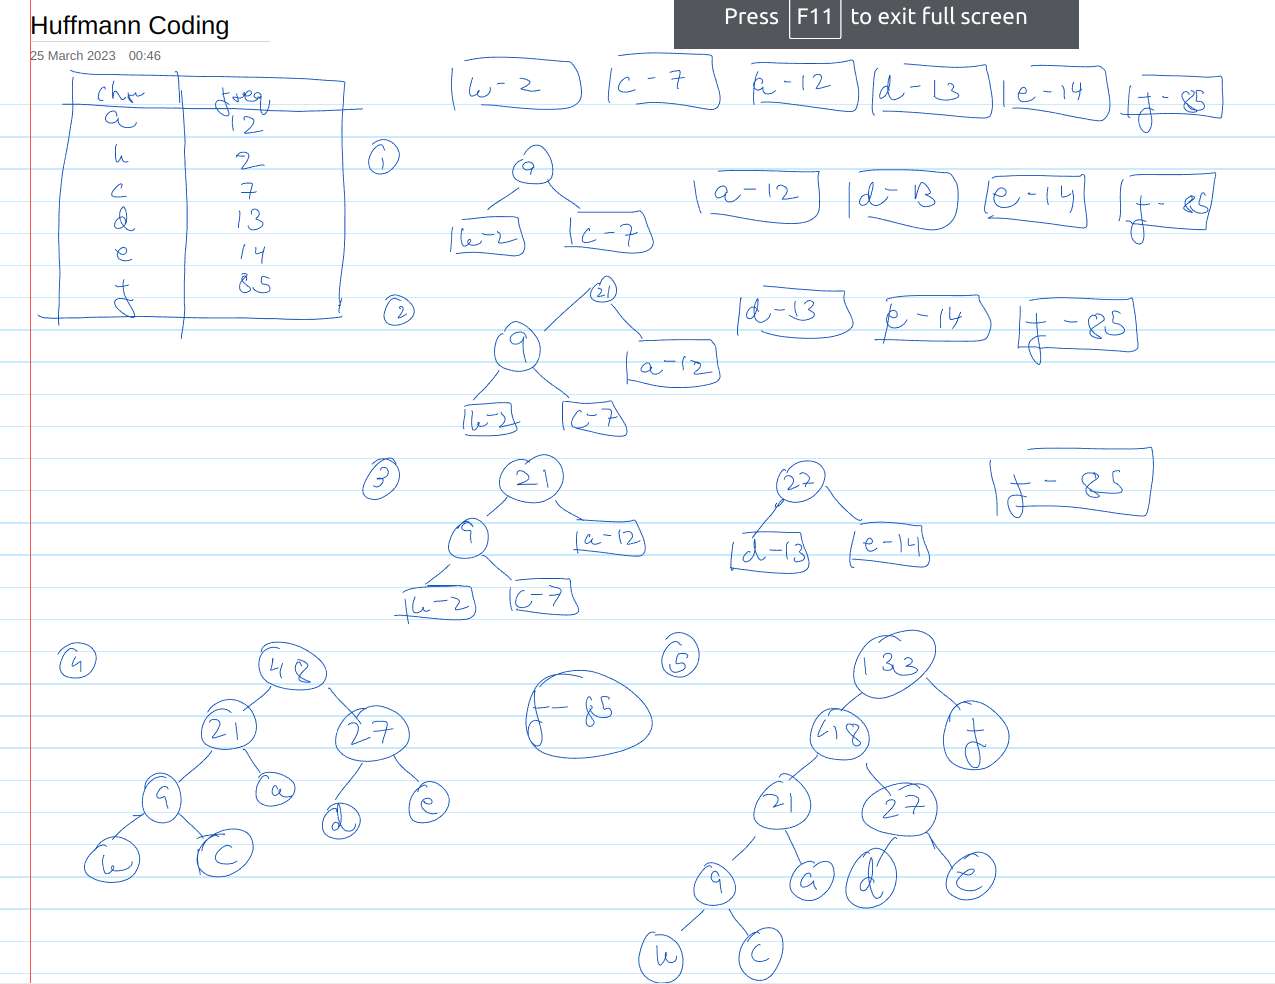 Huffmann Coding
25 March 2023 00:46
Press F11 to exit full screen
char freq
a 12
b 2
c 7
d 13
e 14
f 85
b-2 c-7 a-12 d-13 e-14 f-85
1
9
b-2 c-7
a-12 d-13 e-14 f-85
2
21
9 a-12
b-2 c-7
d-13 e-14 f-85
3
21
9 a-12
b-2 c-7
27
d-13 e-14
f-85
4
48
21 27
9 a d e
b c
f-85
5
133
48 f
21 27
9 a d e
b c